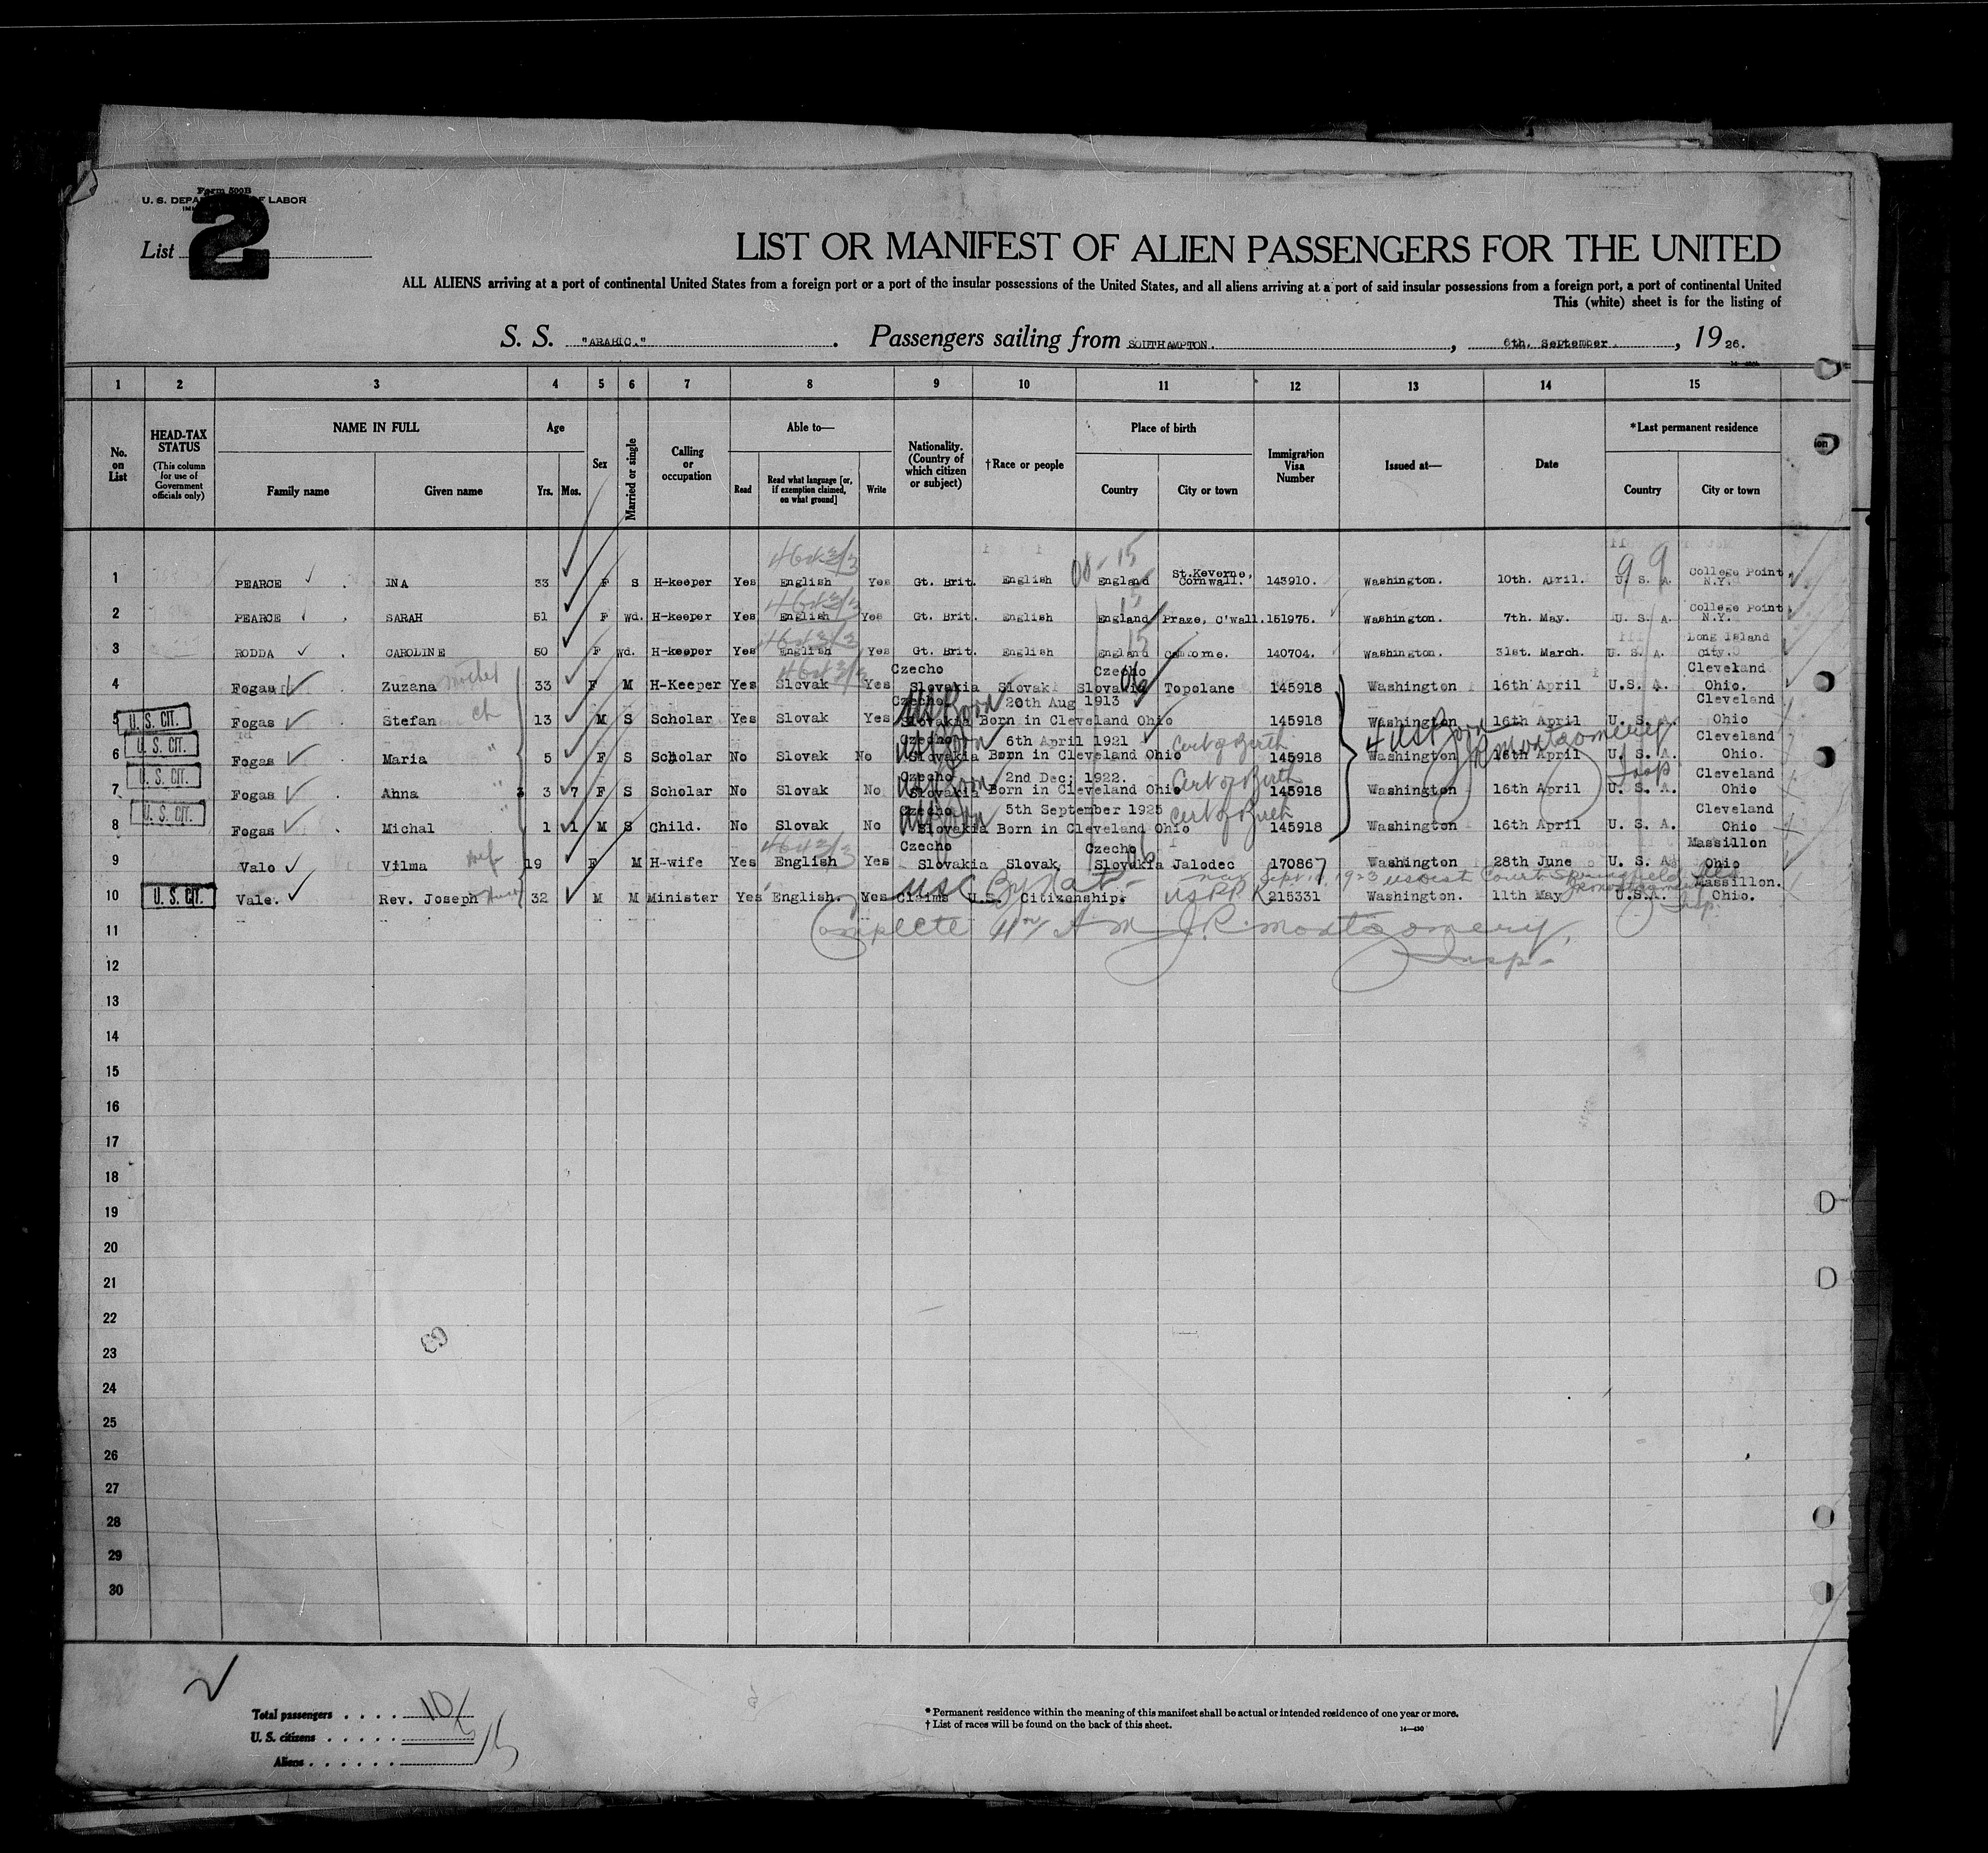 Form 500B
U. S. DEPA F LABOR
List 2
LIST OR MANIFEST OF ALIEN PASSENGERS FOR THE UNITED
ALL ALIENS arriving at a port of continental United States from a foreign port or a port of the insular possessions of the United States, and all aliens arriving at a port of said insular possessions from a foreign port, a port of continental United
This (white) sheet is for the listing of
S. S. "ARABIC." Passengers sailing from SOUTHAMPTON. , 6th. September. , 19 26.
1 2 3 4 5 6 7 8 9 10 11 12 13 14 15
No. on List
HEAD-TAX STATUS (This column for use of Government officials only)
NAME IN FULL
Family name Given name
Age
Yrs. Mos.
Sex
Married or single
Calling or occupation
Able to—
Read Read what language [or, if exemption claimed, on what ground] Write
Nationality. (Country of which citizen or subject)
†Race or people
Place of birth
Country City or town
Immigration Visa Number
Issued at—
Date
*Last permanent residence
Country City or town
08-15 99
1 PEARCE INA 33 F S H-keeper Yes English Yes Gt. Brit. English England St.Keverne, Cornwall. 143910. Washington. 10th. April. U. S. A. College Point N.Y.
2 PEARCE SARAH 51 F Wd. H-keeper Yes English Yes Gt. Brit. English England Praze, C'wall. 151975. Washington. 7th. May. U. S. A. College Point N.Y.
3 RODDA CAROLINE 50 F Wd. H-keeper Yes English Yes Gt. Brit. English England Camborne. 140704. Washington. 31st. March. U. S. A. Long Island City.
4 Fogas Zuzana mother 33 F M H-Keeper Yes Slovak Yes Czecho Slovakia Slovak Czecho Slovakia Topolane 145918 Washington 16th April U.S. A. Cleveland Ohio.
5 U. S. CIT. Fogas Stefan ch 13 M S Scholar Yes Slovak Yes Czecho Slovakia US Born 20th Aug 1913 Born in Cleveland Ohio 145918 Washington 16th April U. S. A. Cleveland Ohio
6 U. S. CIT. Fogas Maria " 5 F S Scholar No Slovak No Czecho Slovakia US Born 6th April 1921 Born in Cleveland Ohio Cert of Berth 145918 Washington 16th April U. S. A. Cleveland Ohio.
4 US Born JR Montgomery Insp
7 U. S. CIT. Fogas Ahna " 3 7 F S Scholar No Slovak No Czecho Slovakia US Born 2nd Dec; 1922. Born in Cleveland Ohio Cert of Birth 145918 Washington 16th April U. S. A. Cleveland Ohio
8 U. S. CIT. Fogas Michal " 1 1 M S Child. No Slovak No Czecho Slovakia US Born 5th September 1925 Born in Cleveland Ohio Cert of Birth 145918 Washington 16th April U. S. A. Cleveland Ohio
9 Valo Vilma wife 19 F M H-wife Yes English Yes Czecho Slovakia Slovak Czecho Slovakia Jalodec 170867 Washington 28th June U. S. A. Massillon Ohio
USC By Nat- Sept 1923 US Dist Court Springfield Ills
10 U. S. CIT. Vale. Rev. Joseph 32 M M Minister Yes English. Yes Claims U.S. Citizenship. US PP 215331 Washington. 11th May U.S.A. Massillon. Ohio.
JR Montgomery Insp.
11 Complete J.R. Montgomery,
12 Insp-
13
14
15
16
17
18
19
20
21
22
23
24
25
26
27
28
29
30
Total passengers . . . . 10
U. S. citizens . . . . .
Aliens . . . . . .
* Permanent residence within the meaning of this manifest shall be actual or intended residence of one year or more.
† List of races will be found on the back of this sheet.
14—430